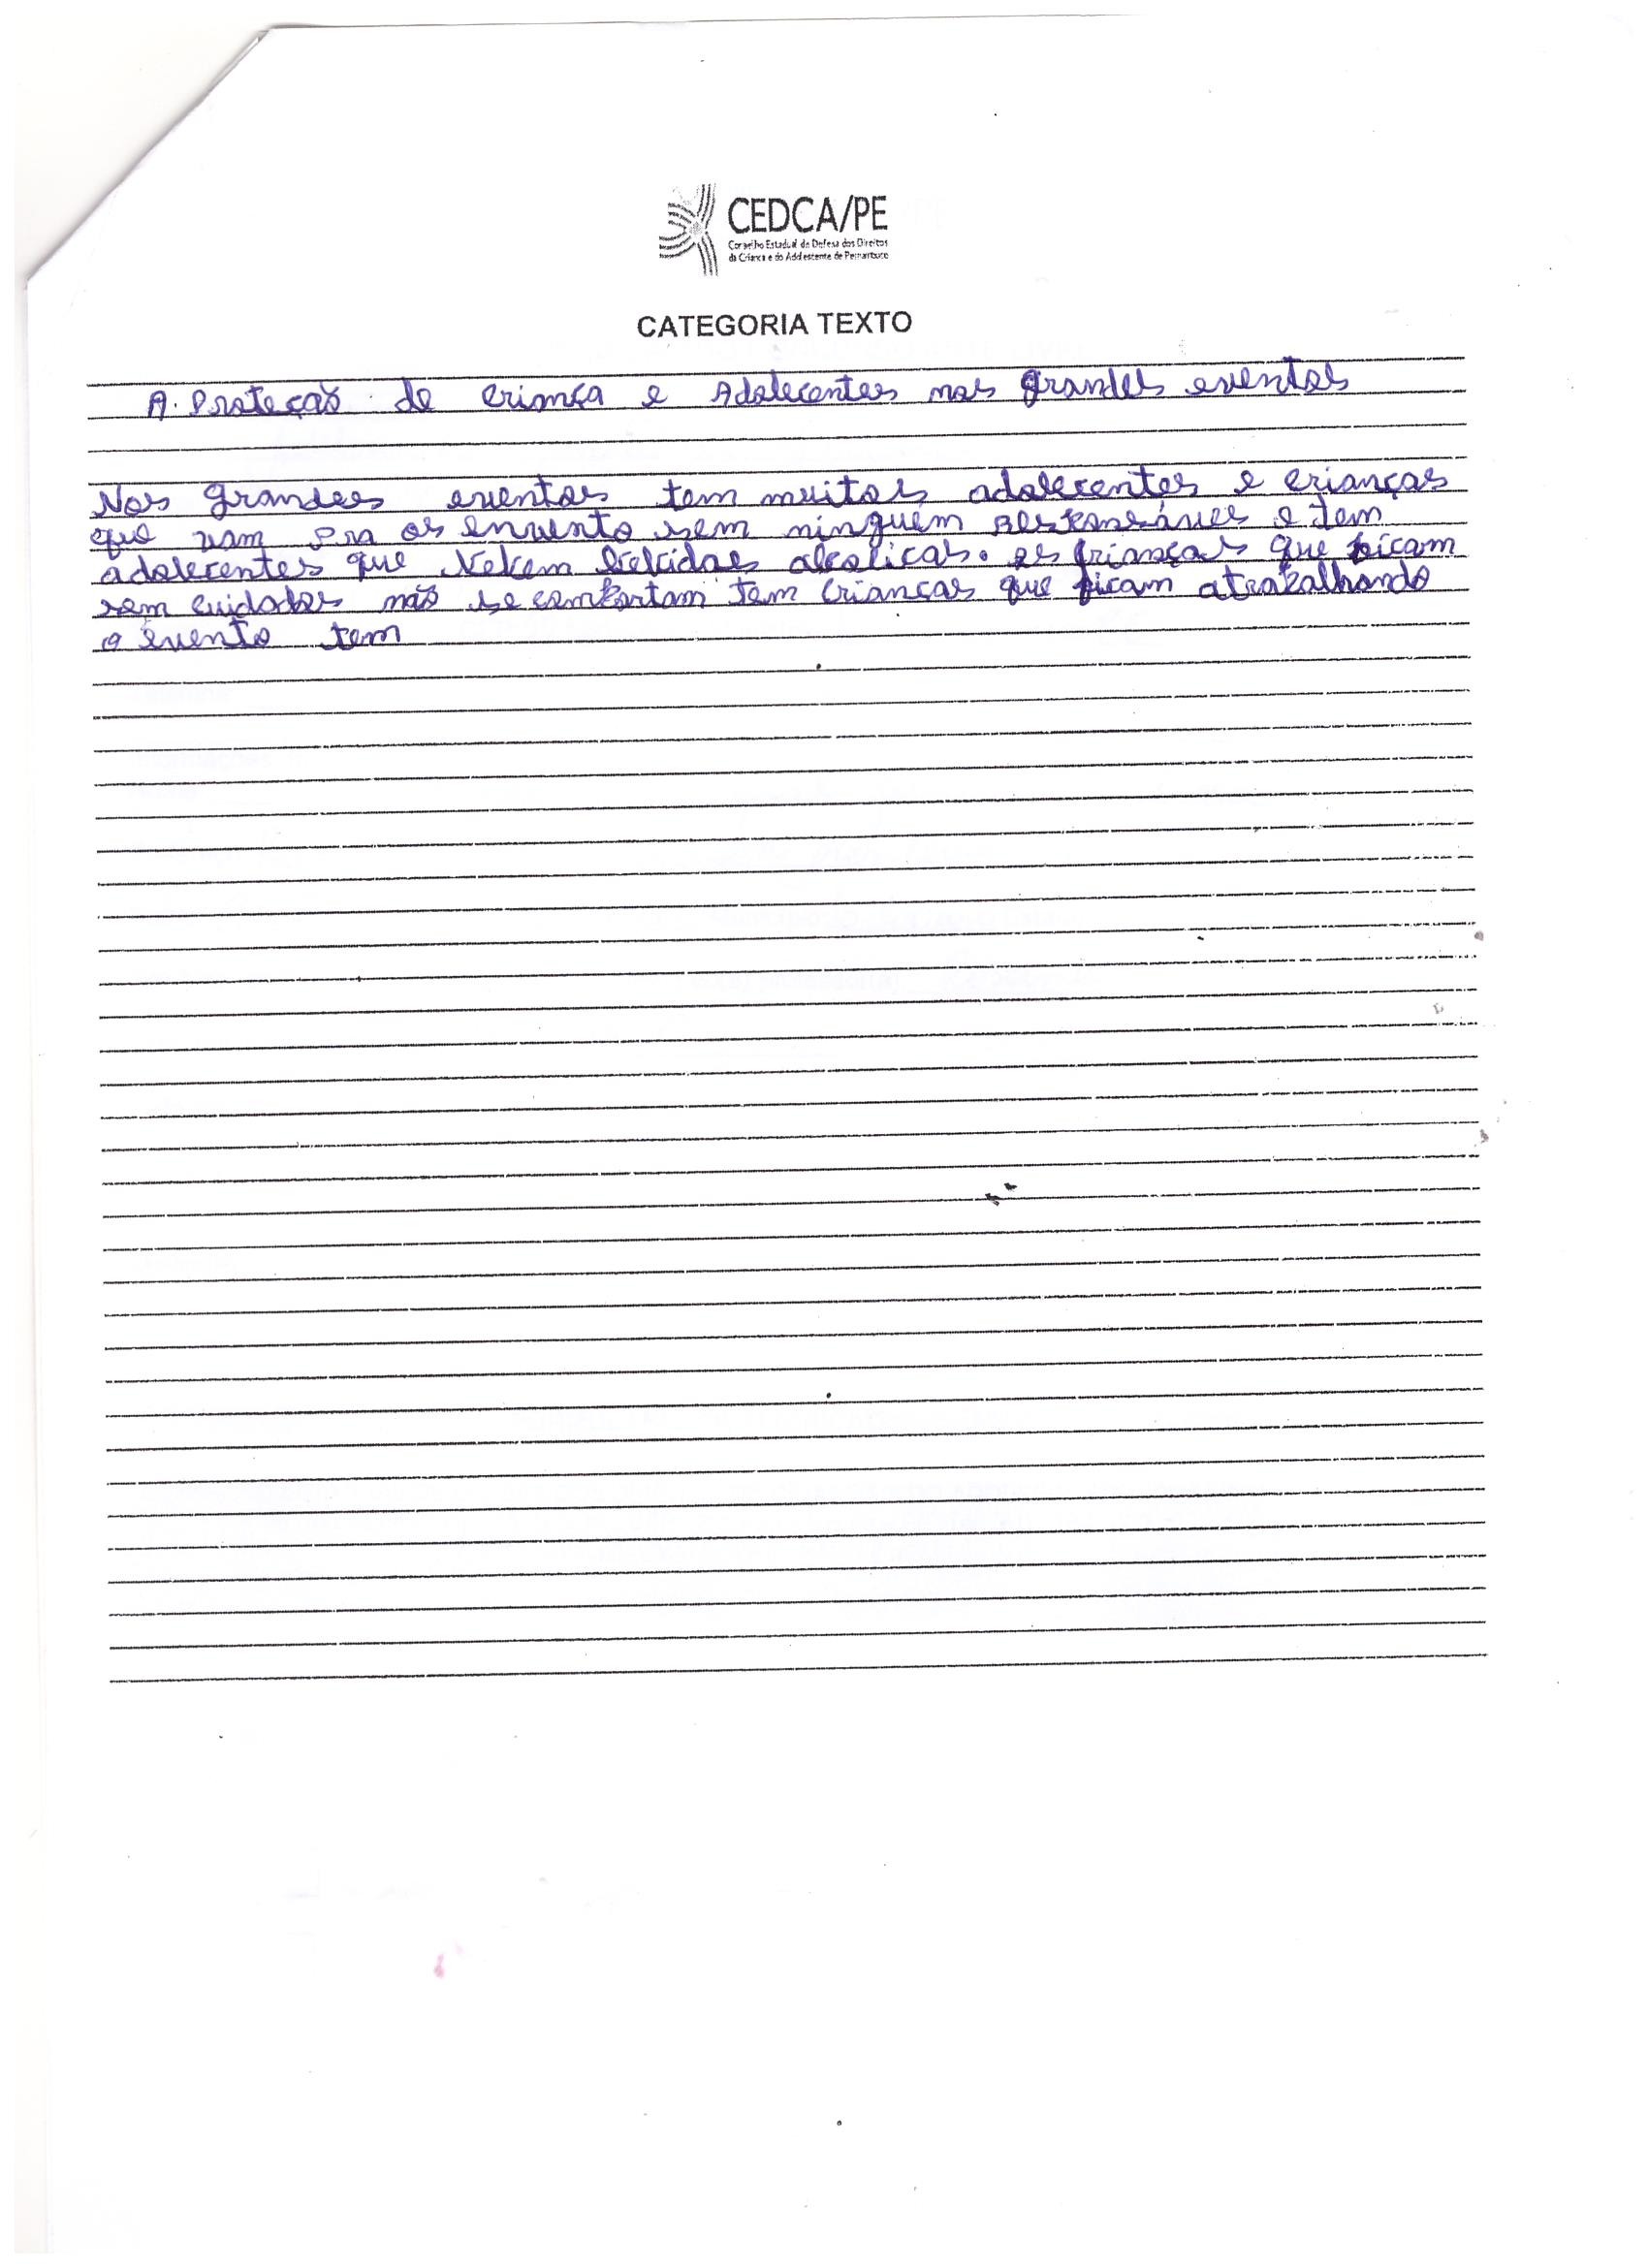 CEDCA/PE
Conselho Estadual de Defesa dos Direitos
da Criança e do Adolescente de Pernambuco
CATEGORIA TEXTO
A. Proteção de criança e Adolecentes nos grandes eventos
Nos grandes eventos tem muitos adolecentes e crianças
que vam pra os envento sem ninguém responsáveis e tem
adolecentes que bebem bebidas alcolicas. as crianças que ficam
sem cuidados não se comportam tem crianças que ficam atrabalhando
o evento tem